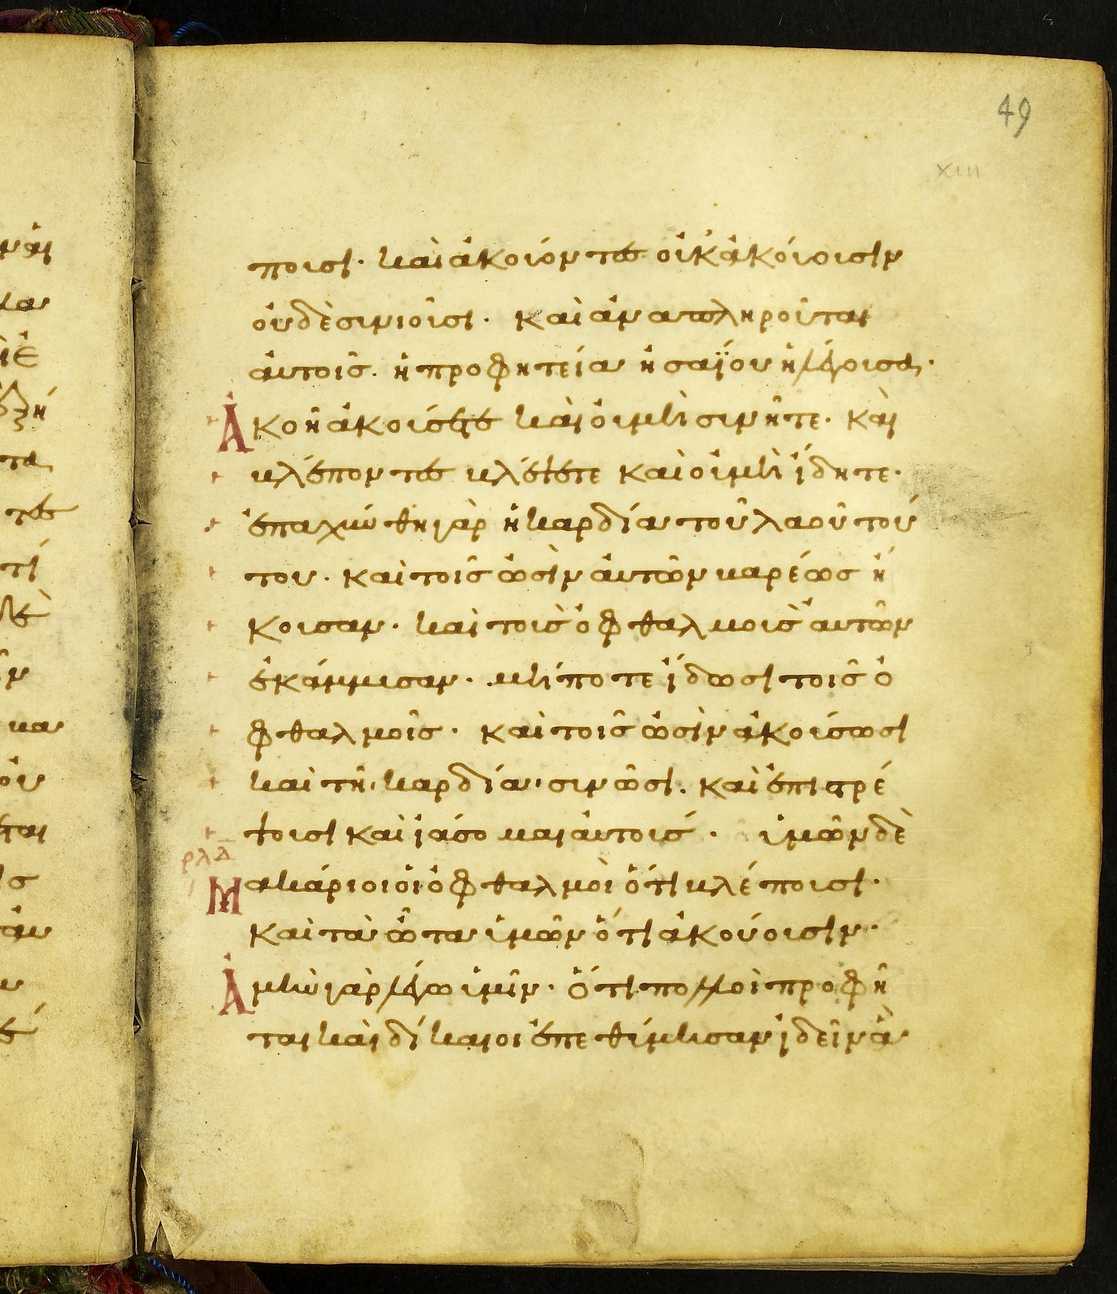 49
XIII
πουσι· καὶ ἀκούοντες οὐκ ἀκούουσιν
οὐδὲ συνιοῦσι· καὶ ἀναπληροῦται
αὐτοῖς. ἡ προφητεία ἡσαΐου ἡ λέγουσα·
Ἀκοῇ ἀκούσετε καὶ οὐ μὴ συνῆτε· καὶ
βλέποντες βλέψετε καὶ οὐ μὴ ἴδητε·
ἐπαχύνθη γὰρ ἡ καρδία τοῦ λαοῦ τού
του· καὶ τοῖς ὠσὶν αὐτῶν βαρέως ἤ
κουσαν· καὶ τοὺς ὀφθαλμοὺς αὐτῶν
ἐκάμμυσαν· μήποτε ἴδωσι τοῖς ὀ
φθαλμοῖς· καὶ τοῖς ὠσὶν ἀκούσωσι
καὶ τῆ καρδία συνῶσι. καὶ ἐπιστρέ
ψουσι καὶ ἰάσομαι αὐτούς· ὑμῶν δὲ
ρλδ
Μακάριοι οἱ ὀφθαλμοὶ ὅτι βλέπουσι·
καὶ τὰ ὦτα ὑμῶν ὅτι ἀκούουσιν·
Ἀμὴν γὰρ λέγω ὑμῖν· ὅτι πολλοὶ προφῆ
ται καὶ δίκαιοι ἐπεθύμησαν ἰδεῖν ἃ